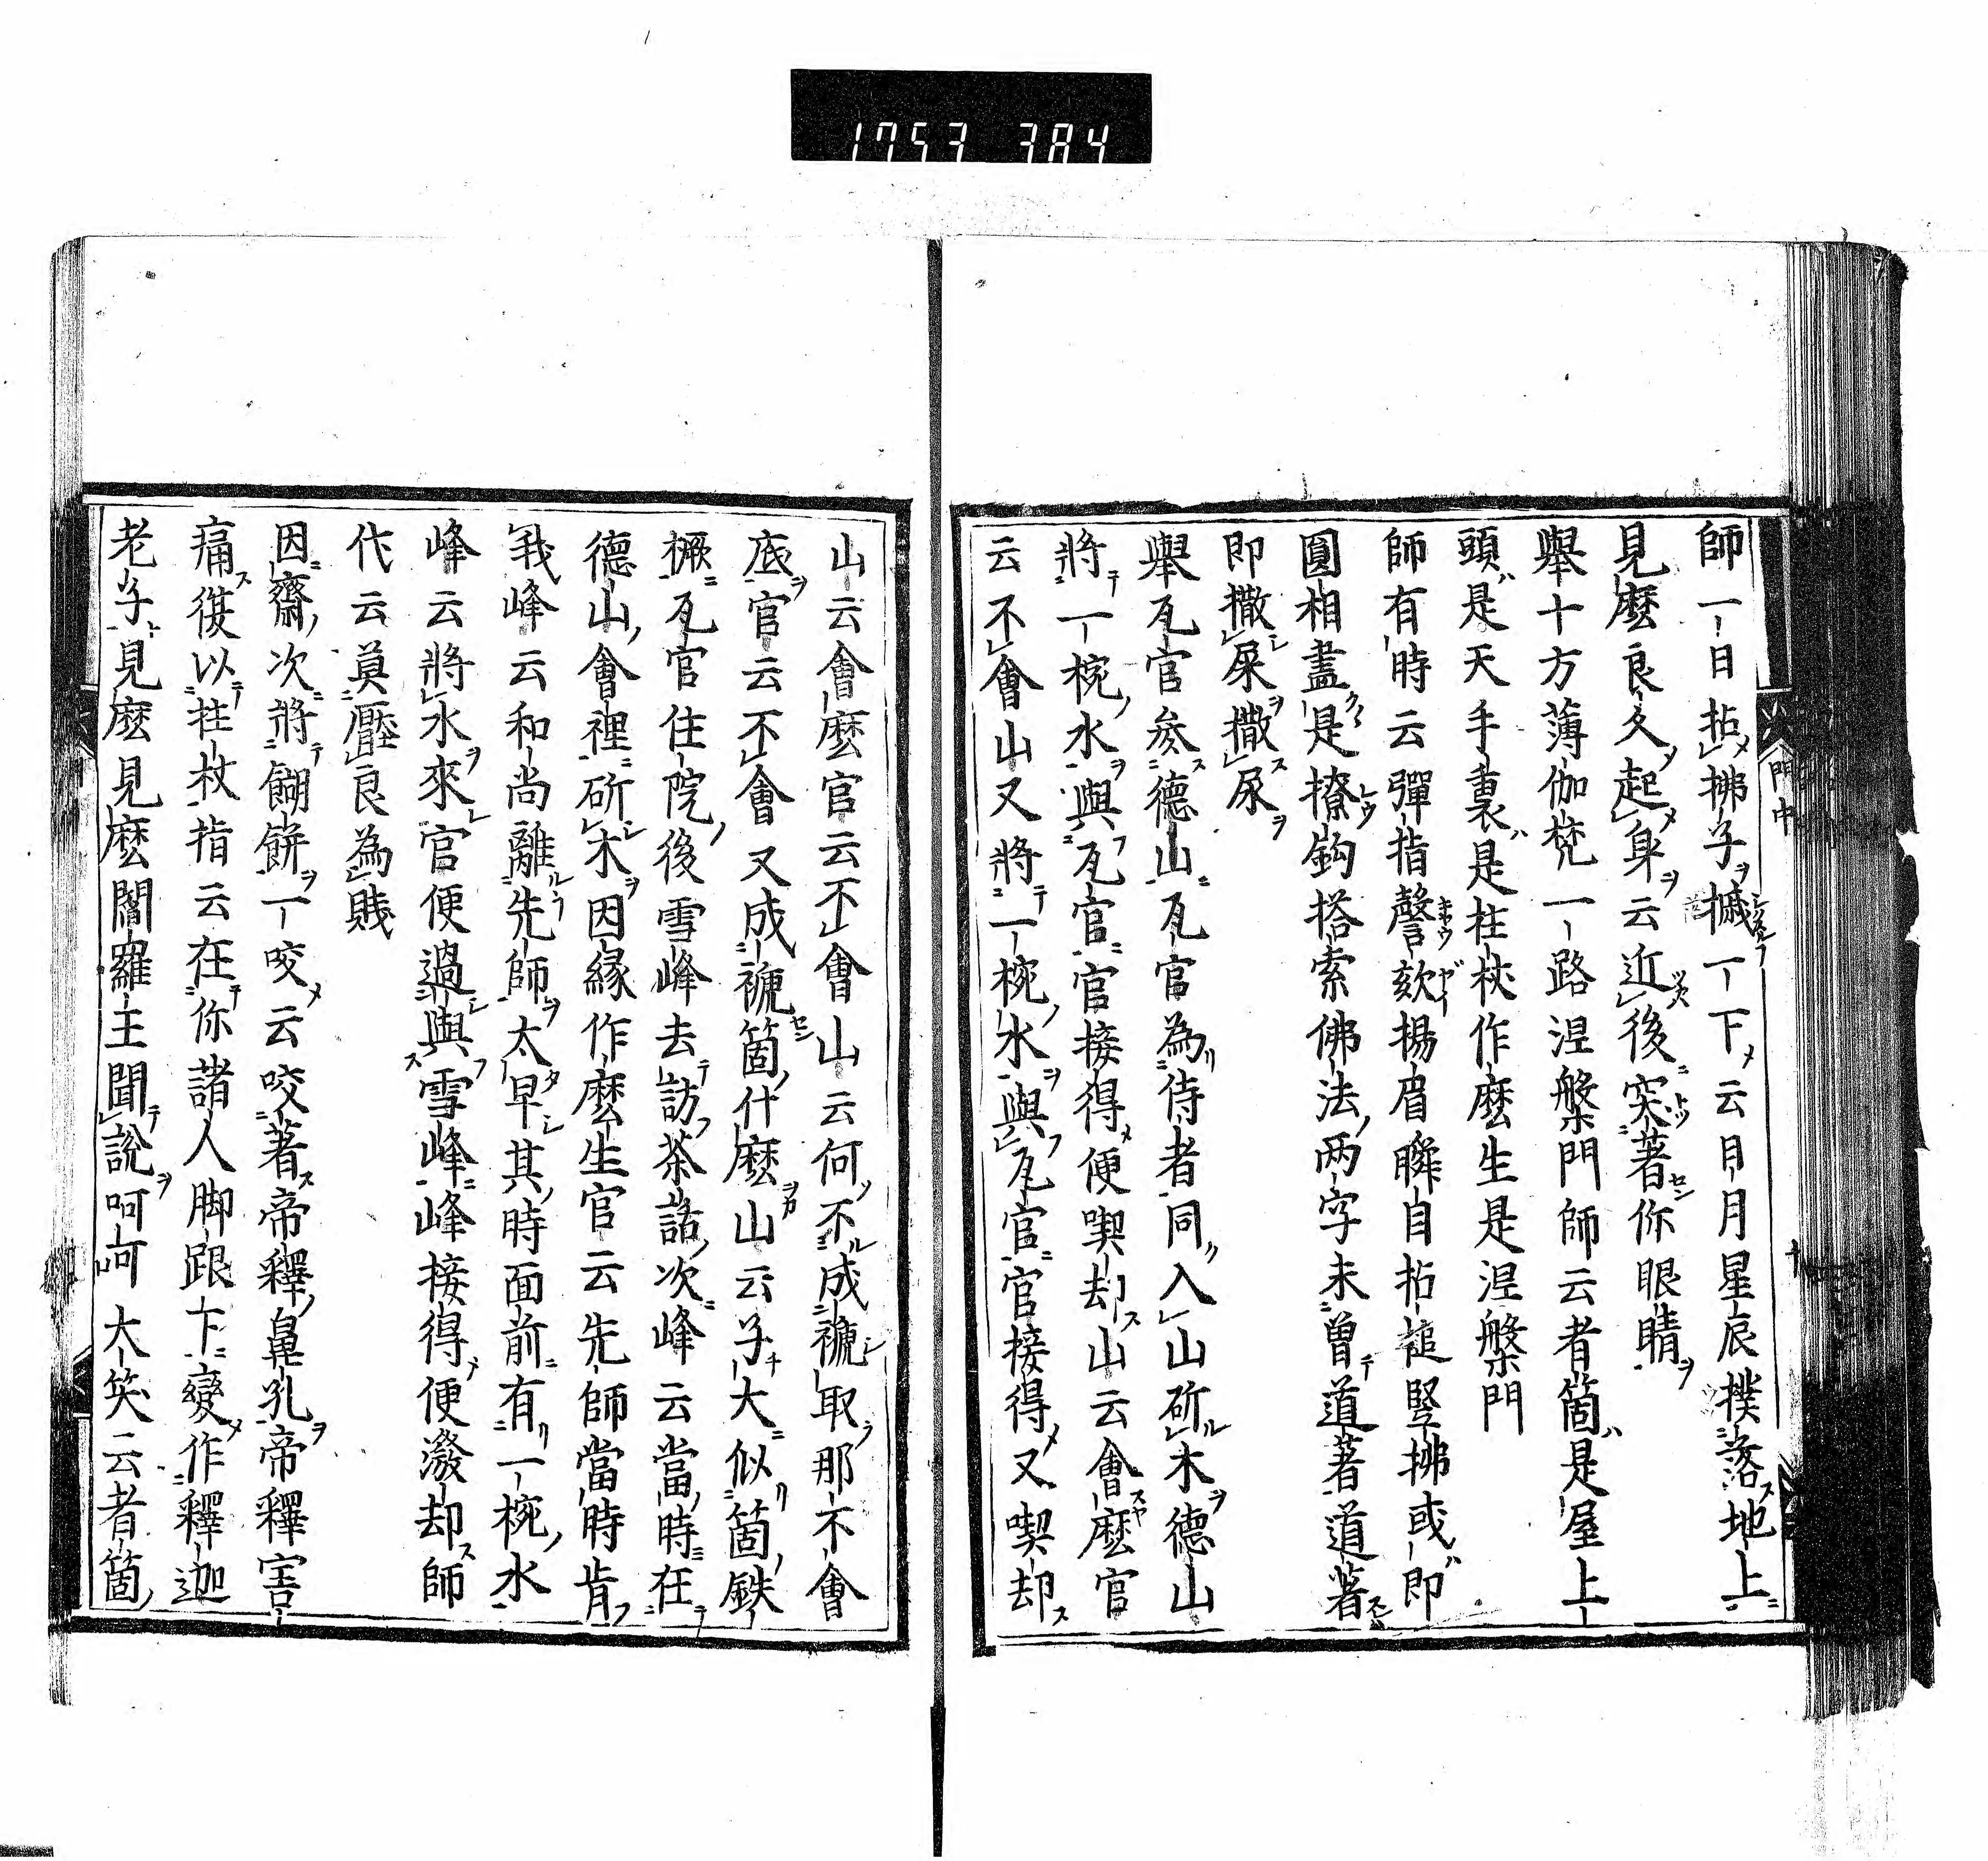 1753 384
門中
師一日拈拂子摵一下云日月星辰撲落地上
見麼良久起身云近後突著你眼睛
舉十方薄伽梵一路涅槃門師云者箇是屋上
頭是天手裏是柱杖作麼生是涅槃門
師有時云彈指謦欬揚眉瞬目拈槌竪拂或即
圓相盡是撩鈎搭索佛法兩字未曽道著道著
即撒屎撒尿
舉瓦官叅德山瓦官為侍者同入山斫木德山
將一椀水與瓦官官接得便喫却山云會麼官
云不會山又將一椀水與瓦官官接得又喫却
山云會麼官云不會山云何不成禠取那不會
底官云不會又成禠箇什麼山云子大似箇鉄
橛瓦官住院後雪峰去訪茶話次峰云當時在
德山會裡斫木因緣作麼生官云先師當時肯
我峰云和尚離先師太早其時面前有一椀水
峰云將水來官便過與雪峰峰接得便潑却師
代云莫壓良為賤
因齋次將餬餅一咬云咬著帝釋鼻孔帝釋害
痛復以拄杖指云在你諸人脚跟下變作釋迦
老子見麼見麼閻羅王聞說呵呵大笑云者箇